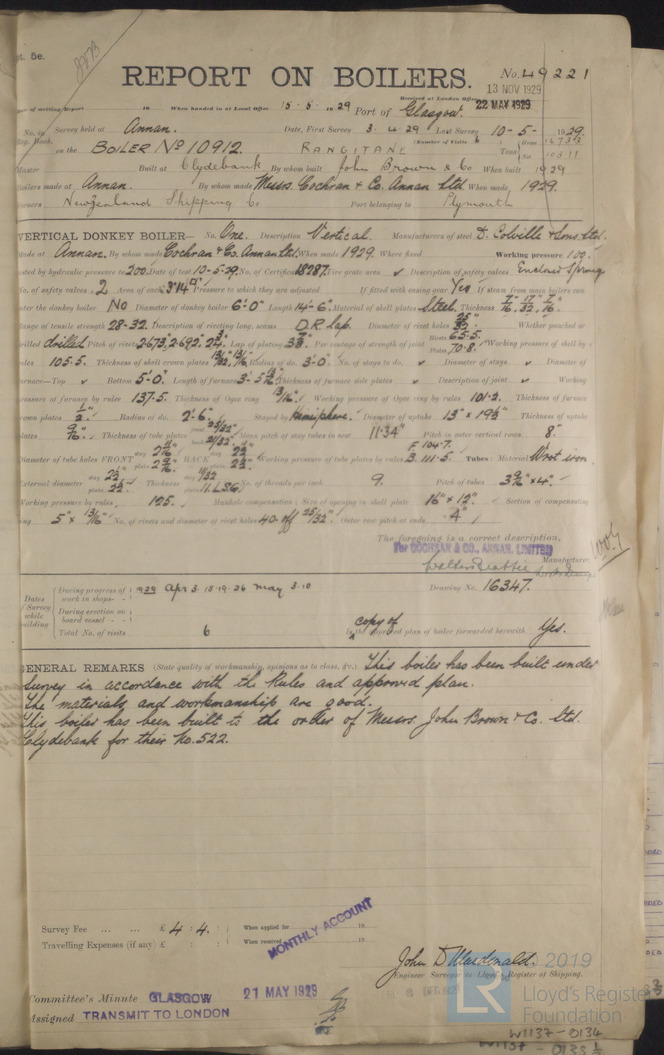 pt. 5e.
REPORT ON BOILERS.
No. 49221
13 NOV 1929
Received at London Office 22 MAY 1929
When handed in at Local Office 15 · 5 · 19 29 Port of Glasgow.
No. in Survey held at Annan. Date, First Survey 3 · 4 · 29 Last Survey 10 - 5 - 1929.
(Number of Visits 6)
on the BOILER No 10912. RANGITANE
Built at Clydebank By whom built John Brown & Co When built 1929
Boilers made at Annan. By whom made Messrs. Cochran & Co. Annan Ltd When made 1929.
Owners New Zealand Shipping Co Port belonging to Plymouth
VERTICAL DONKEY BOILER— No. One. Description Vertical. Manufacturers of steel D. Colville & Sons Ltd.
Made at Annan. By whom made Cochran & Co. Annan Ltd. When made 1929. Where fixed Working pressure 100.
tested by hydraulic pressure to 200. Date of test 10-5-29. No. of Certificate 18287. Fire grate area ✓ Description of safety valves Enclosed Spring
No. of safety valves 2 Area of each 3.14 Pressure to which they are adjusted If fitted with easing gear Yes If steam from main boilers can
enter the donkey boiler No Diameter of donkey boiler 6'-0" Length 14'-6". Material of shell plates Steel. Thickness
Range of tensile strength 28-32. Description of riveting long. seams D.R. lap. Diameter of rivet holes Whether punched or
drilled drilled Pitch of rivets Lap of plating Per centage of strength of joint Rivets 65.5. Plates 70.8. Working pressure of shell by
rules 105.5. Thickness of shell crown plates Radius of do. 3'-0". No. of stays to do. ✓ Diameter of stays ✓ Diameter of
furnace—Top ✓ Bottom 5'-0". Length of furnace Thickness of furnace side plates ✓ Description of joint ✓ Working
pressure of furnace by rules 137.5. Thickness of Ogee ring 13/16". Working pressure of Ogee ring by rules 101.2. Thickness of furnace
crown plates 1/2" Radius of do. 2'-6" Stayed by Hemisphere. Diameter of uptake 13" x 19 1/2" Thickness of uptake
plates 9/16". Thickness of tube plates Mean pitch of stay tubes in nest 11.34" Pitch in outer vertical rows 8"
Diameter of tube holes FRONT BACK Working pressure of tube plates by rules F. 104.7. B. 111.5. Tubes: Material Wrot iron
External diameter Thickness No. of threads per inch 9. Pitch of tubes
Working pressure by rules 125. Manhole compensation: Size of opening in shell plate 16" x 12". Section of compensating
ring 5" x 13/16" No. of rivets and diameter of rivet holes 40 off 25/32". Outer row pitch at ends 4"
The foregoing is a correct description,
For COCHRAN & CO., ANNAN, LIMITED
Manufacturer.
Dates of Survey while building
During progress of work in shops - - 1929 Apr 3. 15. 19. 26 May 3. 10
During erection on board vessel - -
Total No. of visits 6
Drawing No. 16347.
Is the copy of approved plan of boiler forwarded herewith Yes.
GENERAL REMARKS (State quality of workmanship, opinions as to class, &c.) This boiler has been built under
survey in accordance with the Rules and approved plan.
The materials and workmanship are good.
This boiler has been built to the order of Messrs. John Brown & Co. Ltd.
Clydebank for their No. 522.
Survey Fee ... ... £ 4 : 4 : When applied for 19
Travelling Expenses (if any) £ : : When received 19
MONTHLY ACCOUNT
John D Macdonald.
Engineer Surveyor to Lloyd's Register of Shipping.
Committee's Minute GLASGOW 21 MAY 1929
Assigned TRANSMIT TO LONDON
2019
LR
Lloyd's Register
Foundation
W1137-0134